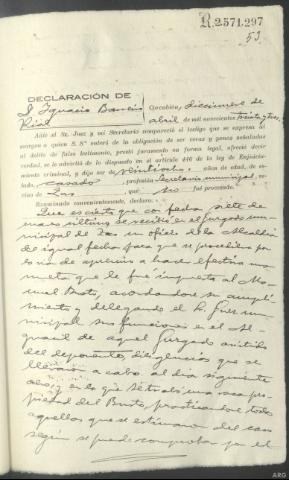 R.2571.297
53
DECLARACIÓN DE
D. Ignacio Barreiro
Rial
diecinueve de
abril de mil novecientos treinta y tres
Ante el Sr. Juez y mi Secretario compareció el testigo que se expresa al
margen a quien S. Sª enteró de la obligación de ser veraz y penas señaladas
al delito de falso testimonio, prestó juramento en forma legal, ofreció decir
verdad, se le advirtió de lo dispuesto en el artículo 446 de la ley de Enjuicia-
miento criminal, y dijo ser veintiocho años de edad, de es-
tado casado, profesión Secretario municipal, ve-
cino de que no fué procesado.
Examinado convenientemente, declara:
Que es cierto que con fecha siete de
marzo último se recibió en el Juzgado mu-
nicipal de un oficio de la Alcaldía
de igual fecha para que se procediera por
la via de apremio a hacer efectiva una
multa que le fué impuesta al Ma-
nuel Brato, acordandose su cumpli-
miento y delegando el Sr. Juez mu-
nicipal sus funciones en el Al-
guacil de aquel Juzgado asistido
del deponente, diligencias que se
llevaron a cabo al dia siguiente
ocho, y en la que se trabó una vaca pro-
piedad del Brato, practicandose todas
aquellas que se estimaron del caso
según se puede comprobar por el
ARG